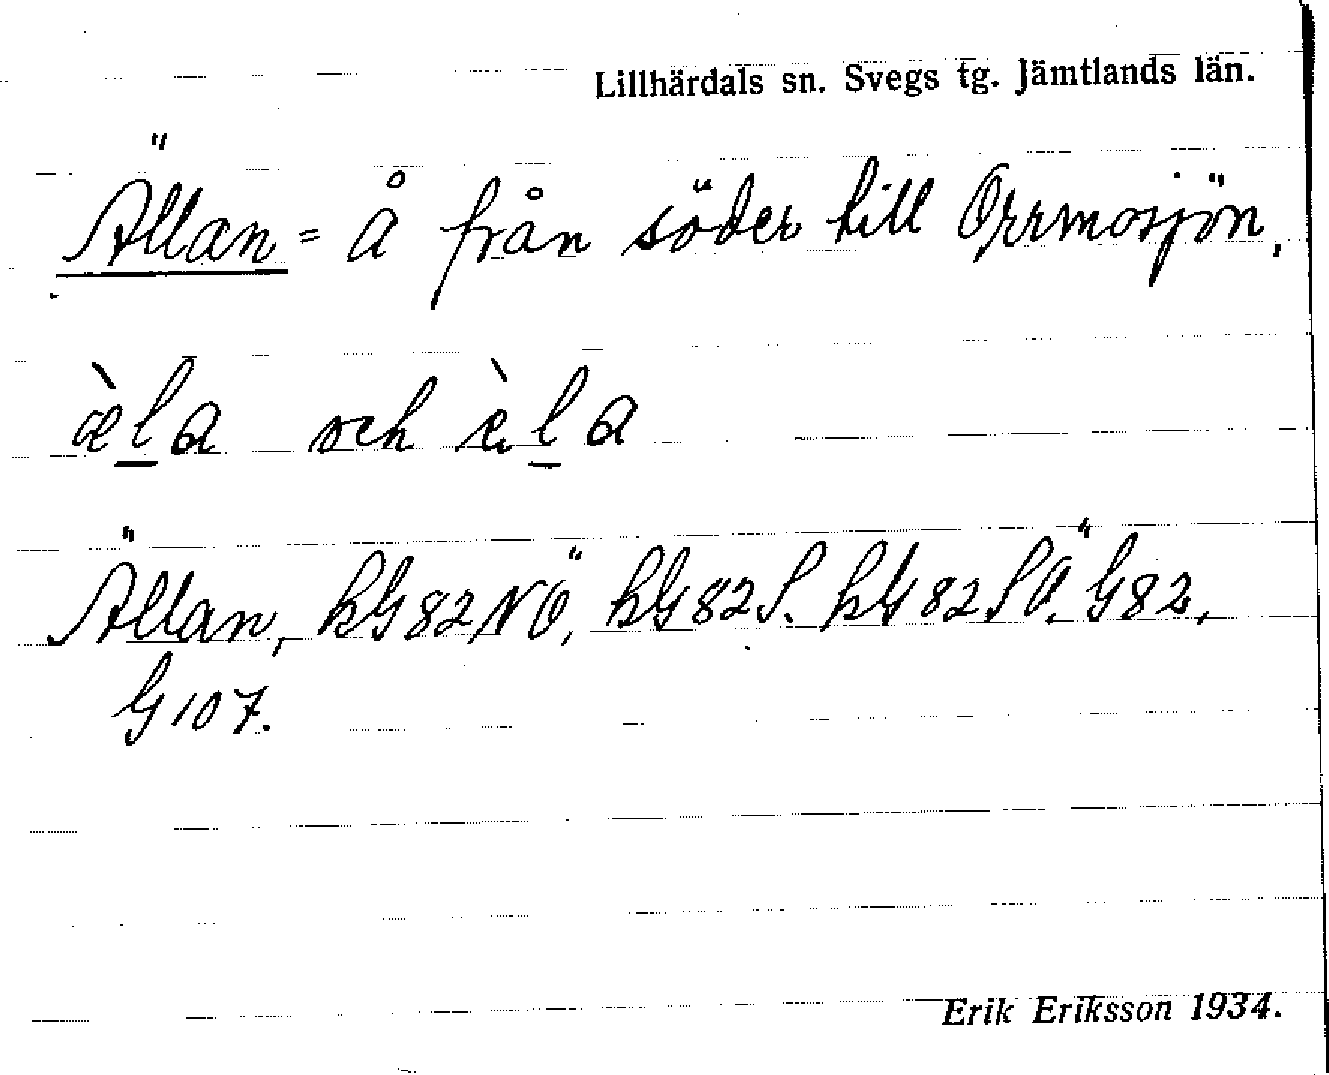 Lillhärdals sn. Svegs tg. Jämtlands län.
Ällan = å från söder till Orrmosjön.
æ̀l̲a och ὲl̲a
Ällan, kG82NÖ, kG82S. kG82SÖ, G82,
G107.
Erik Eriksson 1934.